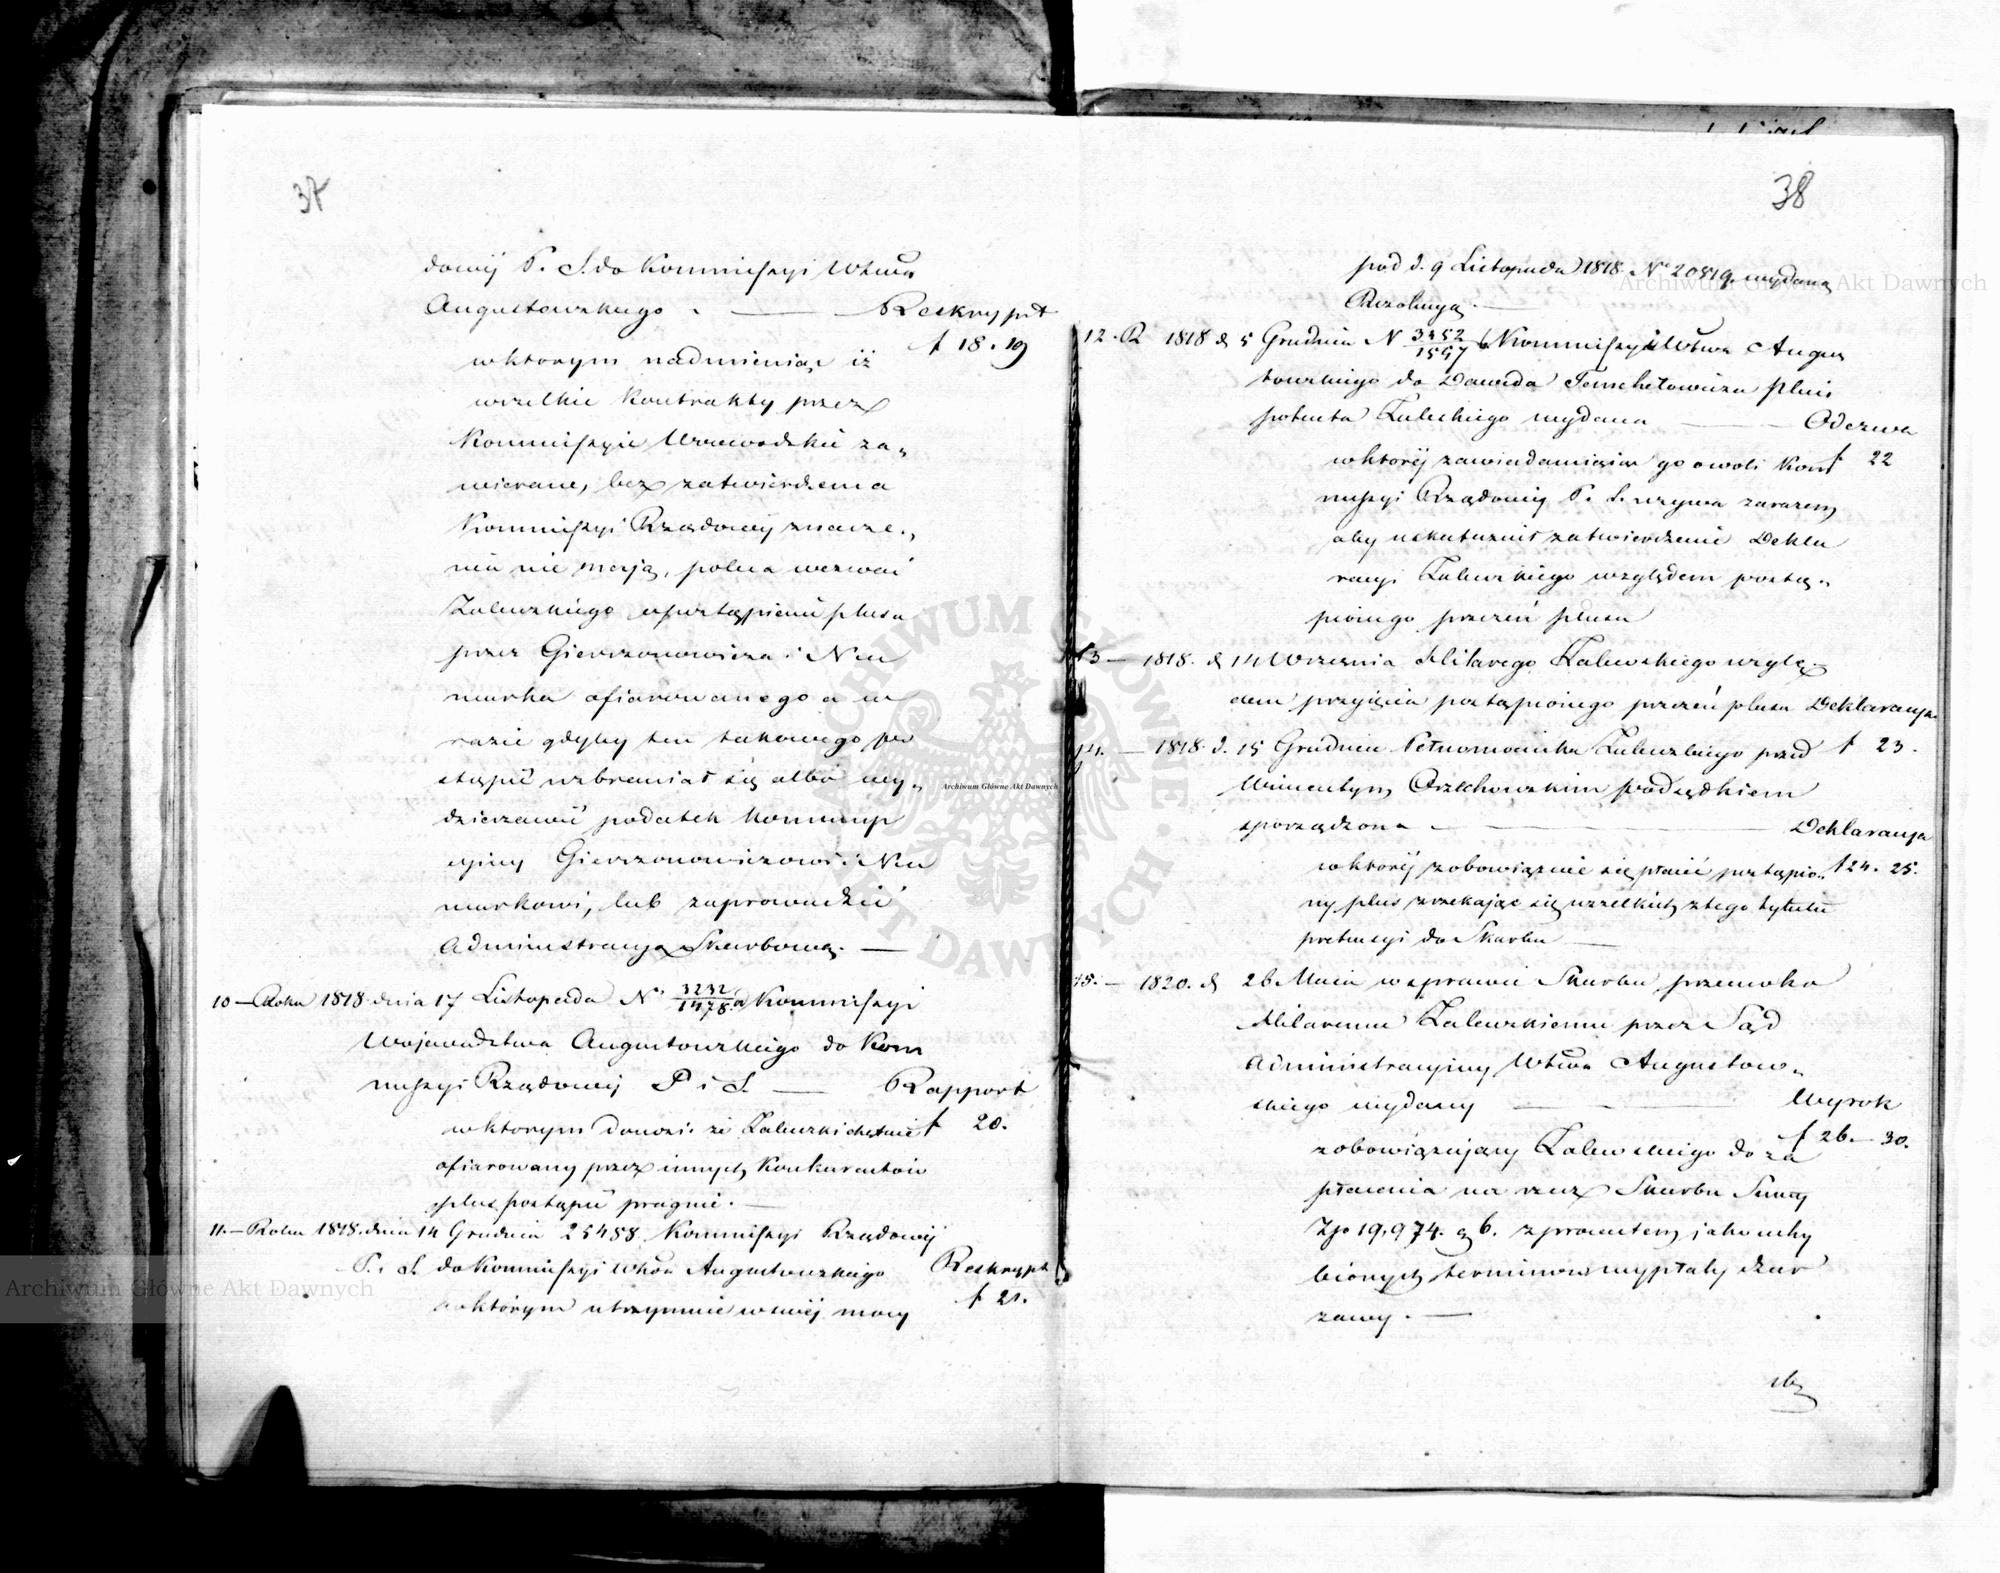 37
dowéy P. i S. do Kommissyi Wtwa
Augustowskiego. — Reskrypt
f 18. 19
w ktorym nadmieniaiąc iż
wszelkie Kontrakty przez
Kommissyie Woiewodzkie za„
wierane, bez zatwierdzenia
Kommissyi Rządowéy znacze„
nia nie maią, poleca wezwać
Zalewskiego o postąpienie plusu
przez Gierszonowicza i Neu
marka ofiarowanego a w
razie gdyby ten takowego po
stąpić wzbraniał się albo wy„
dzierzawić podatek konsump
cyiny Gierszonowiczowi i Neu
markowi, lub zaprowadzić
Administracyą Skarbową. —
10 — Roku 1818 dnia 17 Listopada No 3232/1478 Kommissyi
Województwa Augustowskiego do Kom
missyi Rządowéy P i S. — Rapport
w ktorym donosi że Zalewski chętnie f 20.
ofiarowany przez innych Konkurentów
plus postąpić pragnie. —
11. — Roku 1818 dnia 14 Grudnia 25458 Kommissyi Rządowéy
P. i S. do Kommissyi Wtwa Augustowskiego Reskrypt
w którym utrzymuie w swéj mocy f 21.
38
pod d. 9 Listopada 1818 No 20819 wydaną
Rezolucyą. —
12. R 1818 d 5 Grudnia N 3452/1597 Kommissyi Wtwa Augus
towskiego do Dawida Pleni
potenta Zalewskiego wydana — Odezwa
w ktoréj zawiadamiaiąc go o woli Kom f 22
missyi Rządowéy P. i S. wzywa zarazem
aby uskutecznił zatwierdzenie Dekla
racyi Zalewskiego względem postą„
pionego przezeń plusu
13 — 1818. d 14 Września Hilarego Zalewskiego wzglę„
dem przyięcia postąpionego przezeń plusu Deklaracya
14. — 1818 d. 15 Grudnia Pełnomocnika Zalewskiego przed f 23.
Wincentym Orzechowskim podsędkiem
sporządzona — Deklaracya
w ktoréj zobowiązuie się płacić postąpio„ f 24. 25.
ny plus zrzekając się wszelkich z tego tytułu
pretensyi do Skarbu —
15. — 1820. d 26 Maia w sprawie Skarbu przeciwko
Hilaremu Zalewskiemu przez Sąd
Administracyiny Wtwa Augustow„
skiego wydany — Wyrok
f 26. — 30.
zobowiązujący Zalewskiego do za
płacenia na rzecz Skarbu Summy
Złp 19,974. g 6. z procentem jako uchy
bionych terminow wypłaty dzier
zawy. —
Archiwum Główne Akt Dawnych
Archiwum Główne Akt Dawnych
Archiwum Główne Akt Dawnych
ARCHIWUM GŁÓWNE AKT DAWNYCH